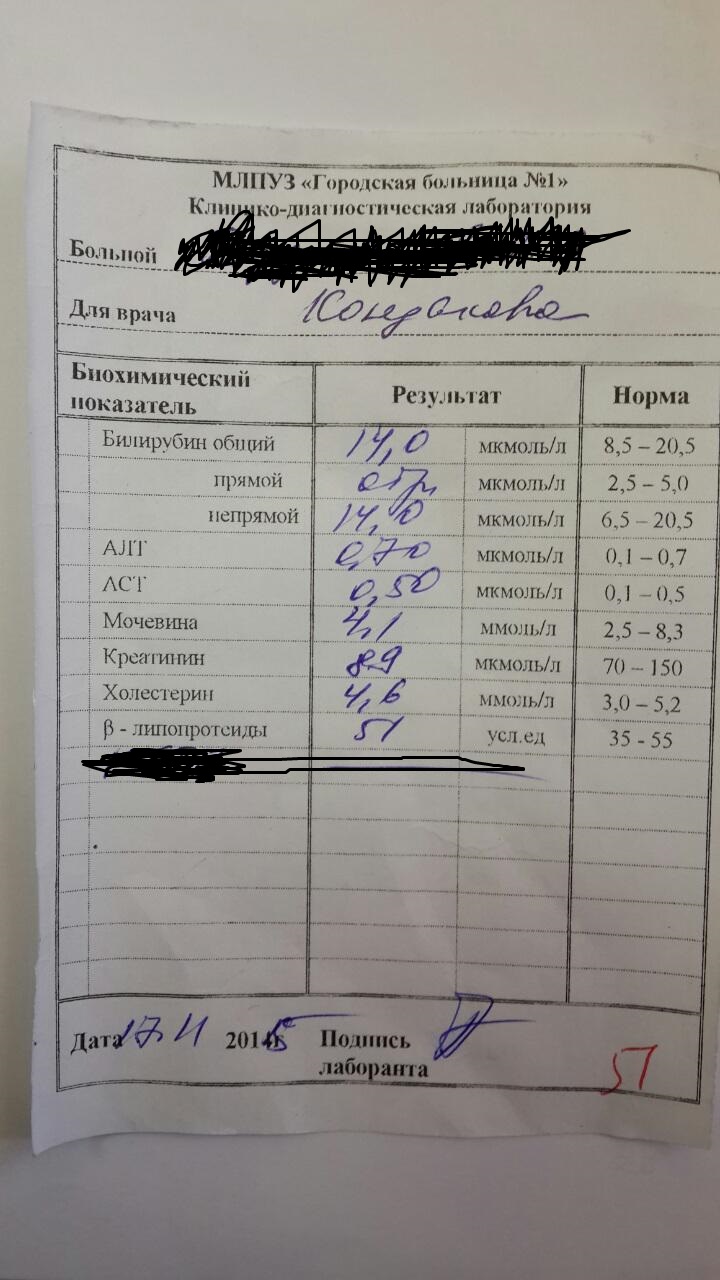 МЛПУЗ «Городская больница №1»
Клинико-диагностическая лаборатория
Больной
Для врача Кондакова
Биохимический показатель Результат Норма
Билирубин общий 14,0 мкмоль/л 8,5 – 20,5
прямой отр. мкмоль/л 2,5 – 5,0
непрямой 14,0 мкмоль/л 6,5 – 20,5
АЛТ 0,70 мкмоль/л 0,1 – 0,7
АСТ 0,50 мкмоль/л 0,1 – 0,5
Мочевина 4,1 ммоль/л 2,5 – 8,3
Креатинин 89 мкмоль/л 70 – 150
Холестерин 4,6 ммоль/л 3,0 – 5,2
β - липопротеиды 51 усл.ед 35 - 55
Дата 17.11 2015 Подпись
лаборанта
51